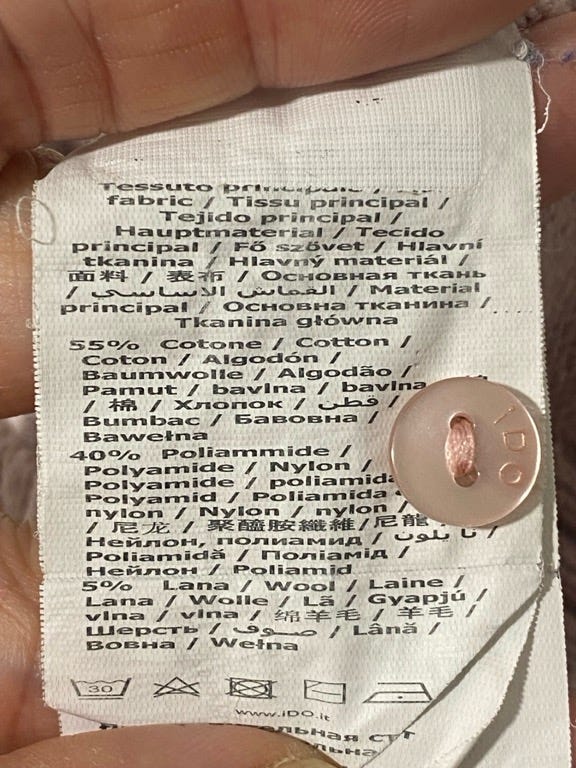 Tessuto principale /
fabric / Tissu principal /
Tejido principal /
Hauptmaterial / Tecido
principal / Fő szövet / Hlavní
tkanina / Hlavný materiál /
面料 / 表布 / Основная ткань
/ القماش الاساسى / Material
principal / Основна тканина /
Tkanina główna
55% Cotone / Cotton /
Coton / Algodón /
Baumwolle / Algodão /
Pamut / bavlna / bavlna
/ 棉 / Хлопок / قطن /
Bumbac / Бавовна /
Bawełna
40% Poliammide /
Polyamide / Nylon /
Polyamide / poliamida
Polyamid / Poliamida
nylon / Nylon / nylon /
/ 尼龙 / 聚醯胺纖維/尼龍
Нейлон, полиамид / نايلون /
Poliamidă / Поліамід /
Нейлон / Poliamid
5% Lana / Wool / Laine /
Lana / Wolle / Lã / Gyapjú /
vlna / vlna / 绵羊毛 / 羊毛 /
Шерсть / صوف / Lână /
Вовна / Wełna
30
www.iDO.it
iDO